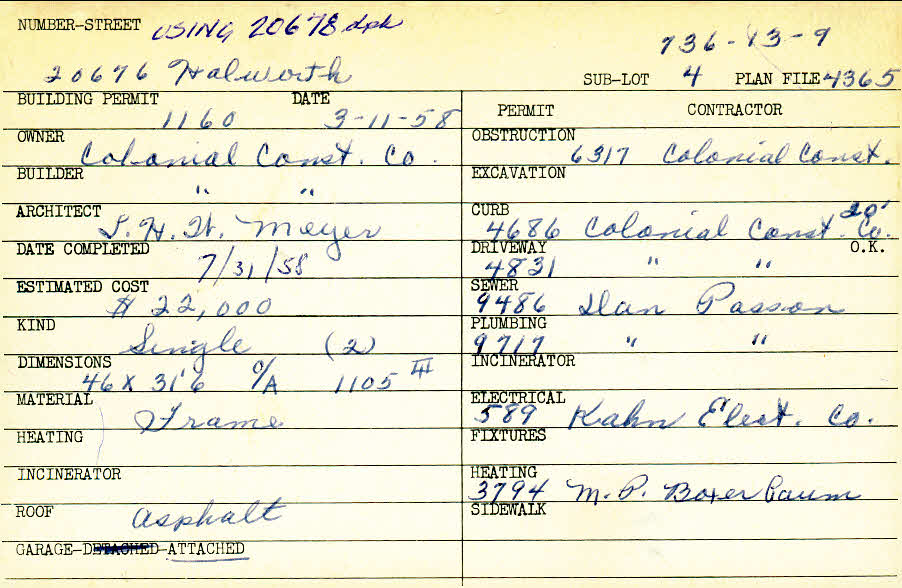 NUMBER-STREET USING 20678 dph
736-13-9
20676 Halworth
SUB-LOT 4 PLAN FILE 4365
BUILDING PERMIT DATE
1160 3-11-58
OWNER
Colonial Const. Co.
BUILDER
" "
ARCHITECT
S. H. W. Meyer
DATE COMPLETED
7/31/58
ESTIMATED COST
$ 22,000
KIND
Single (2)
DIMENSIONS
46 x 31'6 O/A 1105 III
MATERIAL
Frame
HEATING
INCINERATOR
ROOF
asphalt
GARAGE-DETACHED-ATTACHED
PERMIT CONTRACTOR
OBSTRUCTION
6317 Colonial Const.
EXCAVATION
CURB 20'
4686 Colonial Const. Co.
DRIVEWAY O.K.
4831 " "
SEWER
9486 Dan Passon
PLUMBING
9717 " "
INCINERATOR
ELECTRICAL
589 Kahn Elect. Co.
FIXTURES
HEATING
3794 M. P. Boxerbaum
SIDEWALK